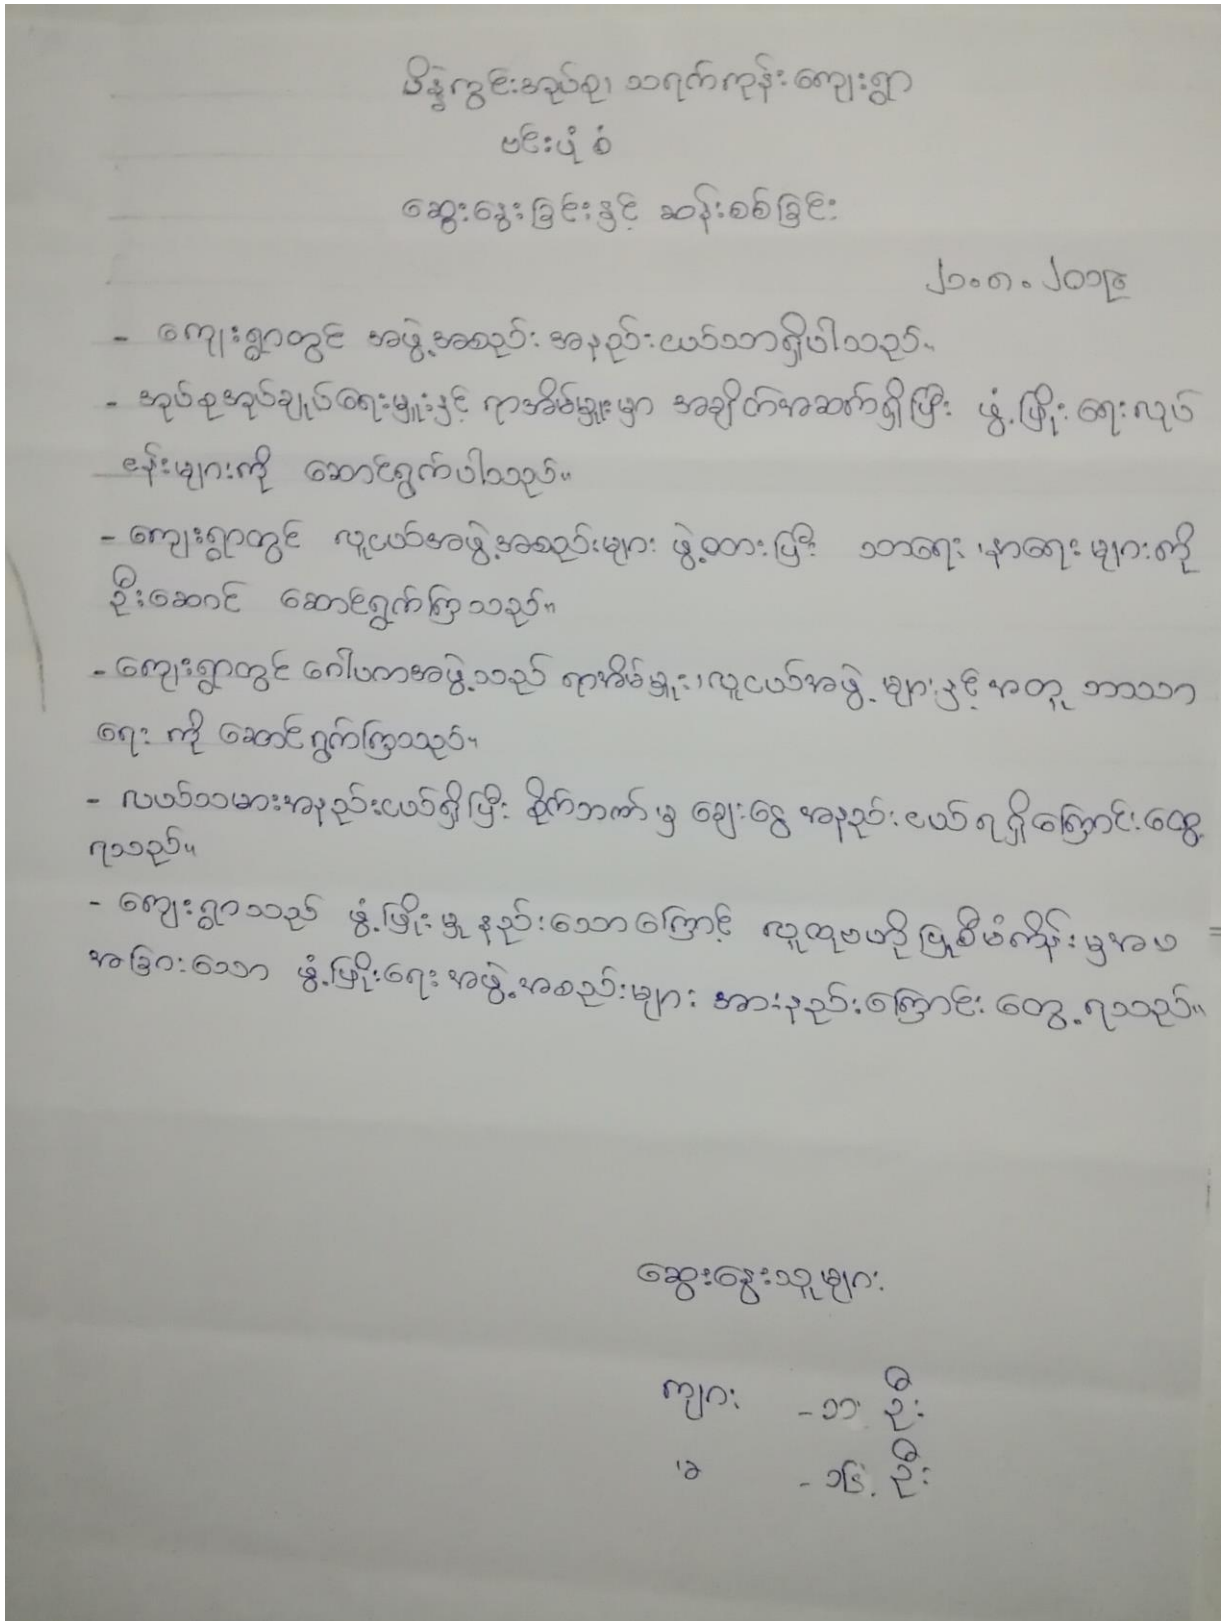 ပိန္နဲကွင်းအုပ်စု၊ သရက်ကုန်းကျေးရွာ
ဗင်းပုံစံ
ဆွေးနွေးခြင်းနှင့် ဆန်းစစ်ခြင်း
၂၁.၈.၂၀၁၉
- ကျေးရွာတွင် အဖွဲ့အစည်း အနည်းငယ်သာရှိပါသည်။
- အုပ်စုအုပ်ချုပ်ရေးမှူးနှင့် ရာအိမ်မှူးမှာ အချိတ်အဆက်ရှိပြီး ဖွံ့ဖြိုးရေးလုပ်
ငန်းများကို ဆောင်ရွက်ပါသည်။
- ကျေးရွာတွင် လူငယ်အဖွဲ့အစည်းများ ဖွဲ့ထားပြီး သာရေး၊နာရေးများကို
ဦးဆောင် ဆောင်ရွက်ကြသည်။
- ကျေးရွာတွင် ဂေါပကအဖွဲ့သည် ရာအိမ်မှူး၊လူငယ်အဖွဲ့များနှင့်အတူ ဘာသာ
ရေး ကို ဆောင်ရွက်ကြသည်။
- လယ်သမားအနည်းငယ်ရှိပြီး စိုက်ဘဏ်မှ ချေးငွေ အနည်းငယ်ရရှိကြောင်းတွေ့
ရသည်။
- ကျေးရွာသည် ဖွံ့ဖြိုးမှုနည်းသောကြောင့် လူထုဗဟိုပြုစီမံကိန်းမှအပ
အခြားသော ဖွံ့ဖြိုးရေးအဖွဲ့အစည်းများ အားနည်းကြောင်း တွေ့ရသည်။
ဆွေးနွေးသူများ
ကျား -၁၁ ဦး
မ -၁၆ ဦး